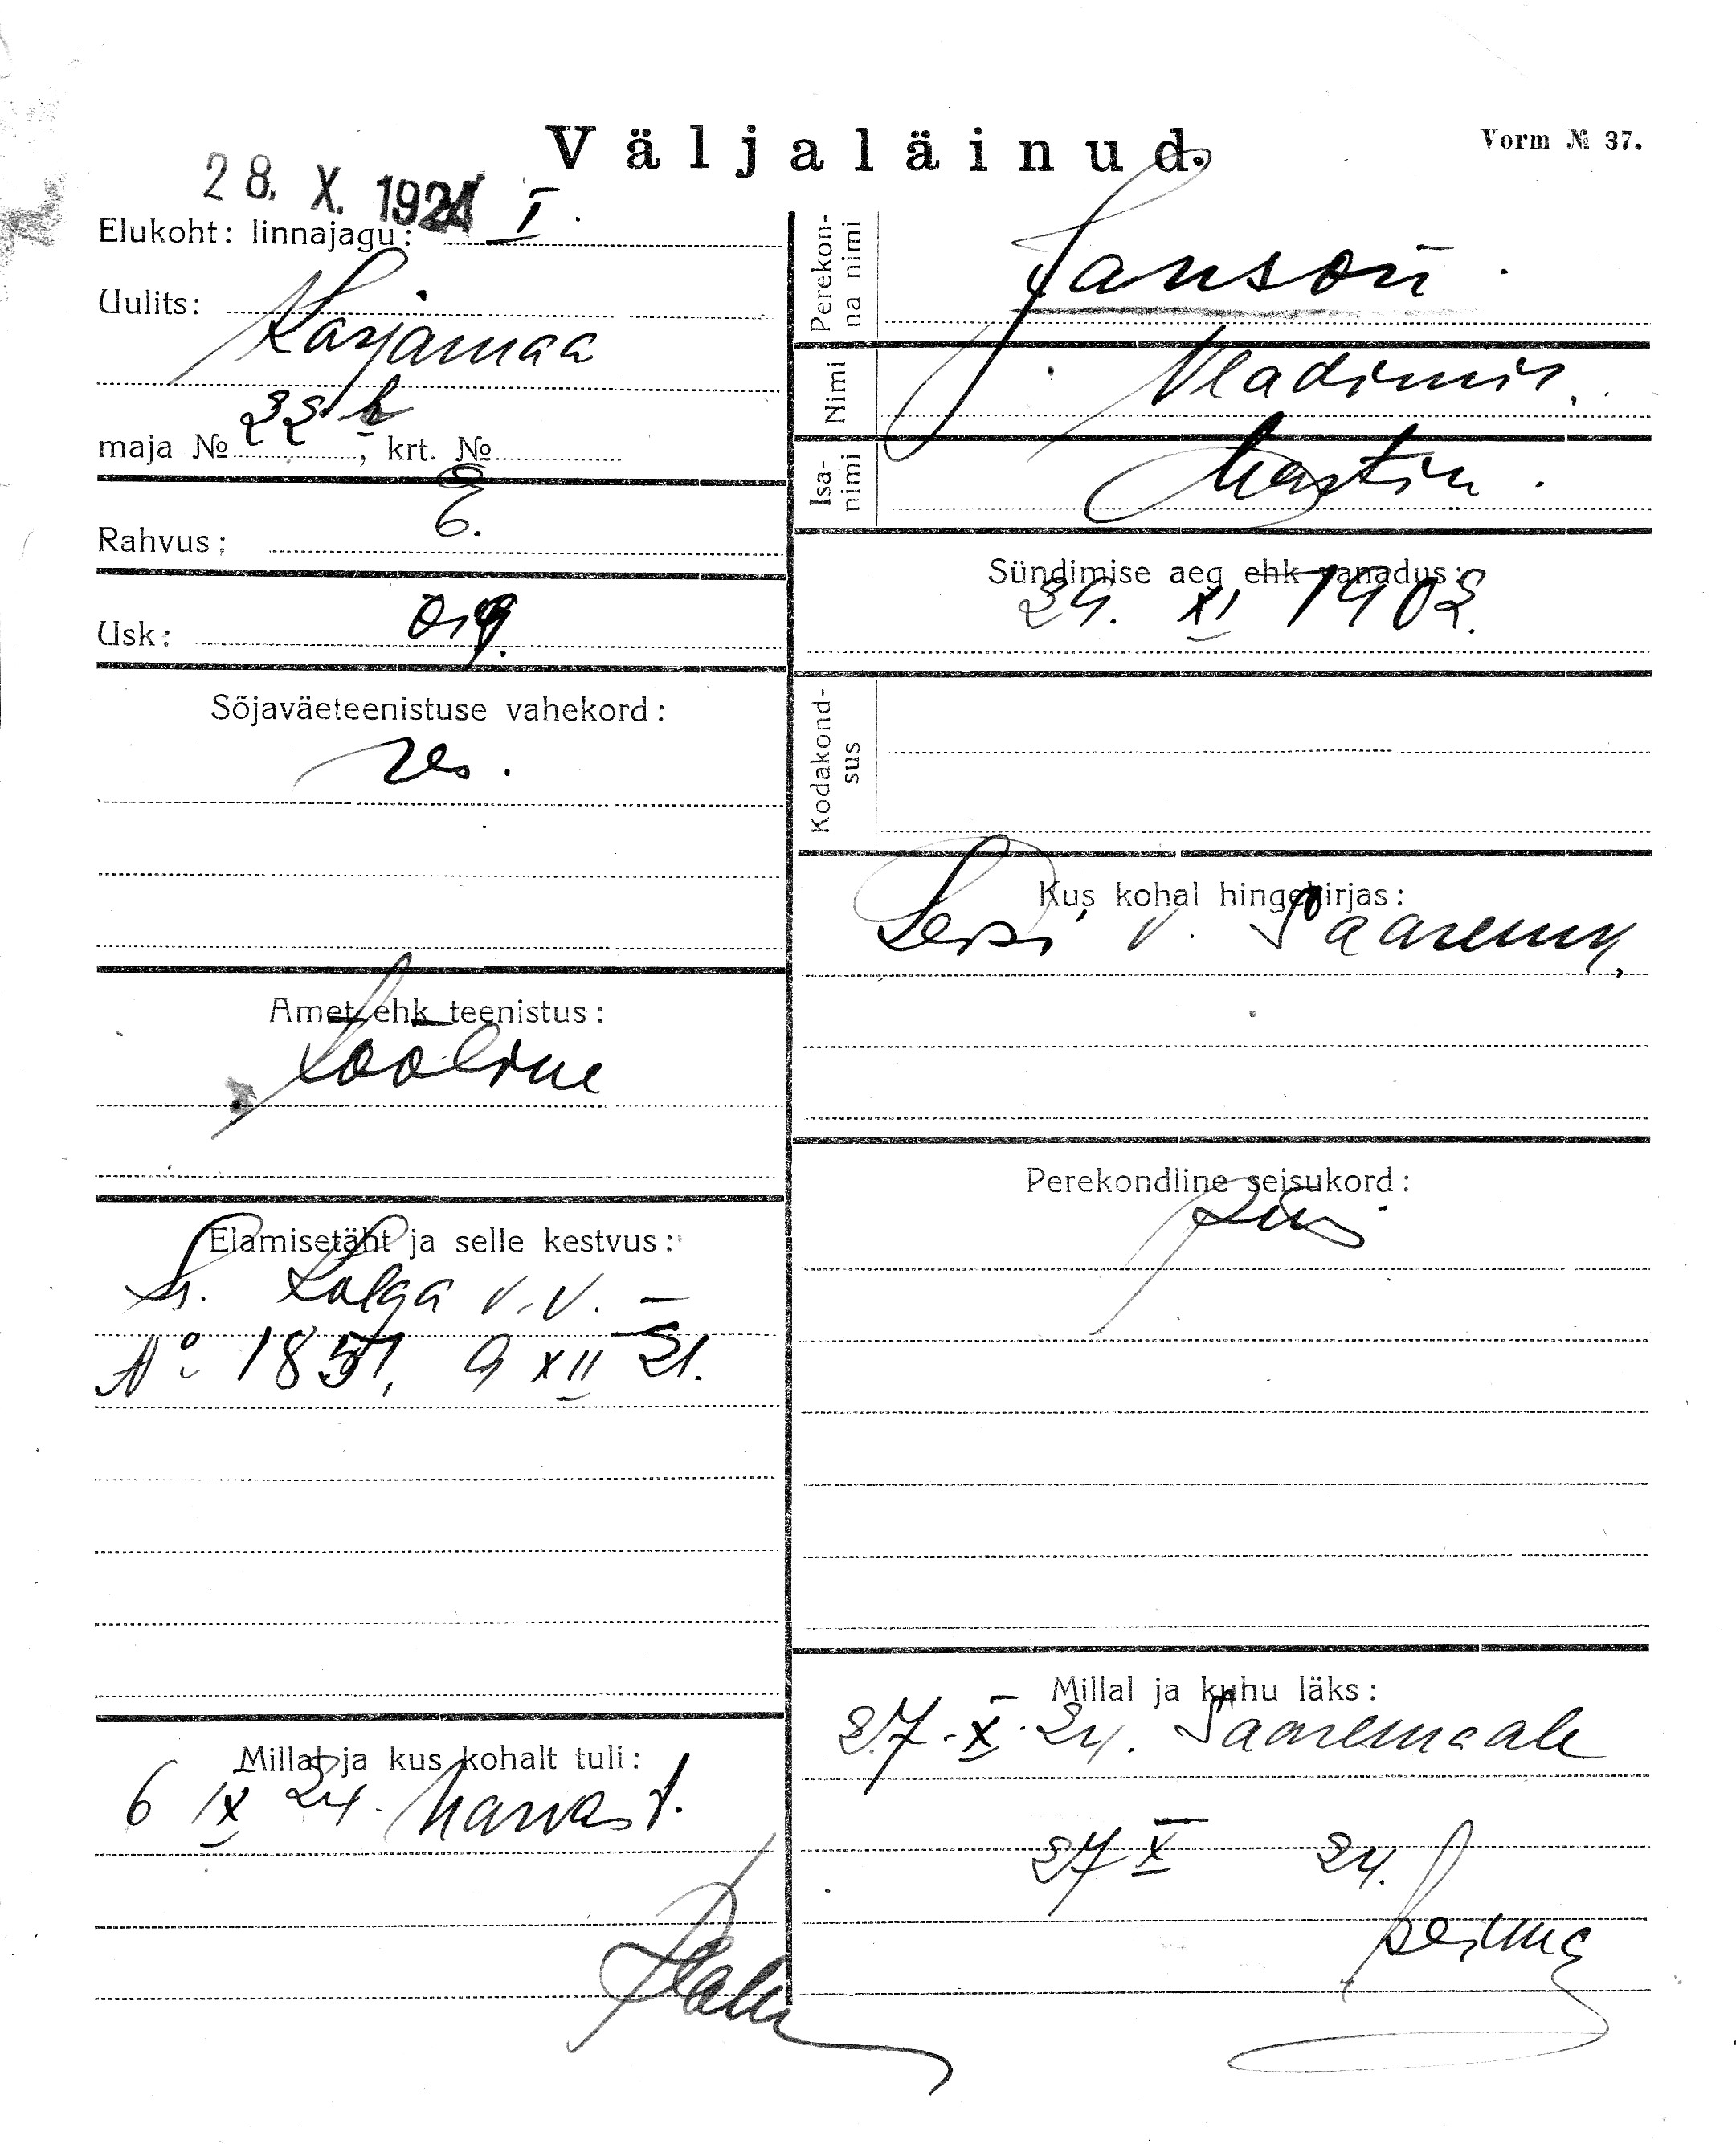 Väljaläinud.
Vorm № 37.
28. X. 1924
Elukoht: linnajagu: I.
Uulits:
Karjamaa
maja № 22 b, krt. №
Rahvus: E.
Usk: õig.
Sõjaväeteenistuse vahekord:
res.
Amet ehk teenistus:
tööline
Elamisetäht ja selle kestvus:
Is. Kolga v.v. —
№ 1851, 9 XII 21.
Millal ja kus kohalt tuli:
6 IX 24. Narvast.
Perekon-
na nimi
Janson.
Nimi
Vladimir.
Isa-
nimi
Martin.
Sündimise aeg ehk vanadus:
29. XI 1902.
Kodakond-
sus
Kus kohal hingekirjas:
Leisi v. Saarem,
Perekondline seisukord:
Millal ja kuhu läks:
27. X. 24. Saaremaale
27 X 24.